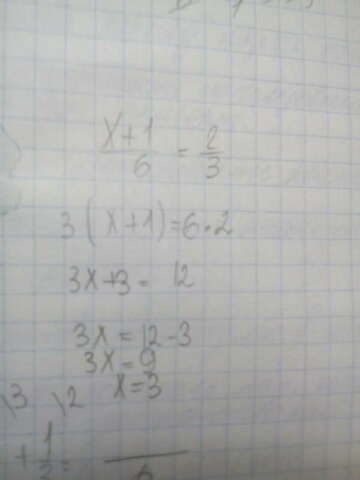 x+1/6 = 2/3
3(x+1)=6·2
3x+3= 12
3x=12-3
3x=9
x=3
\3 \2
+ 1/2 = /6